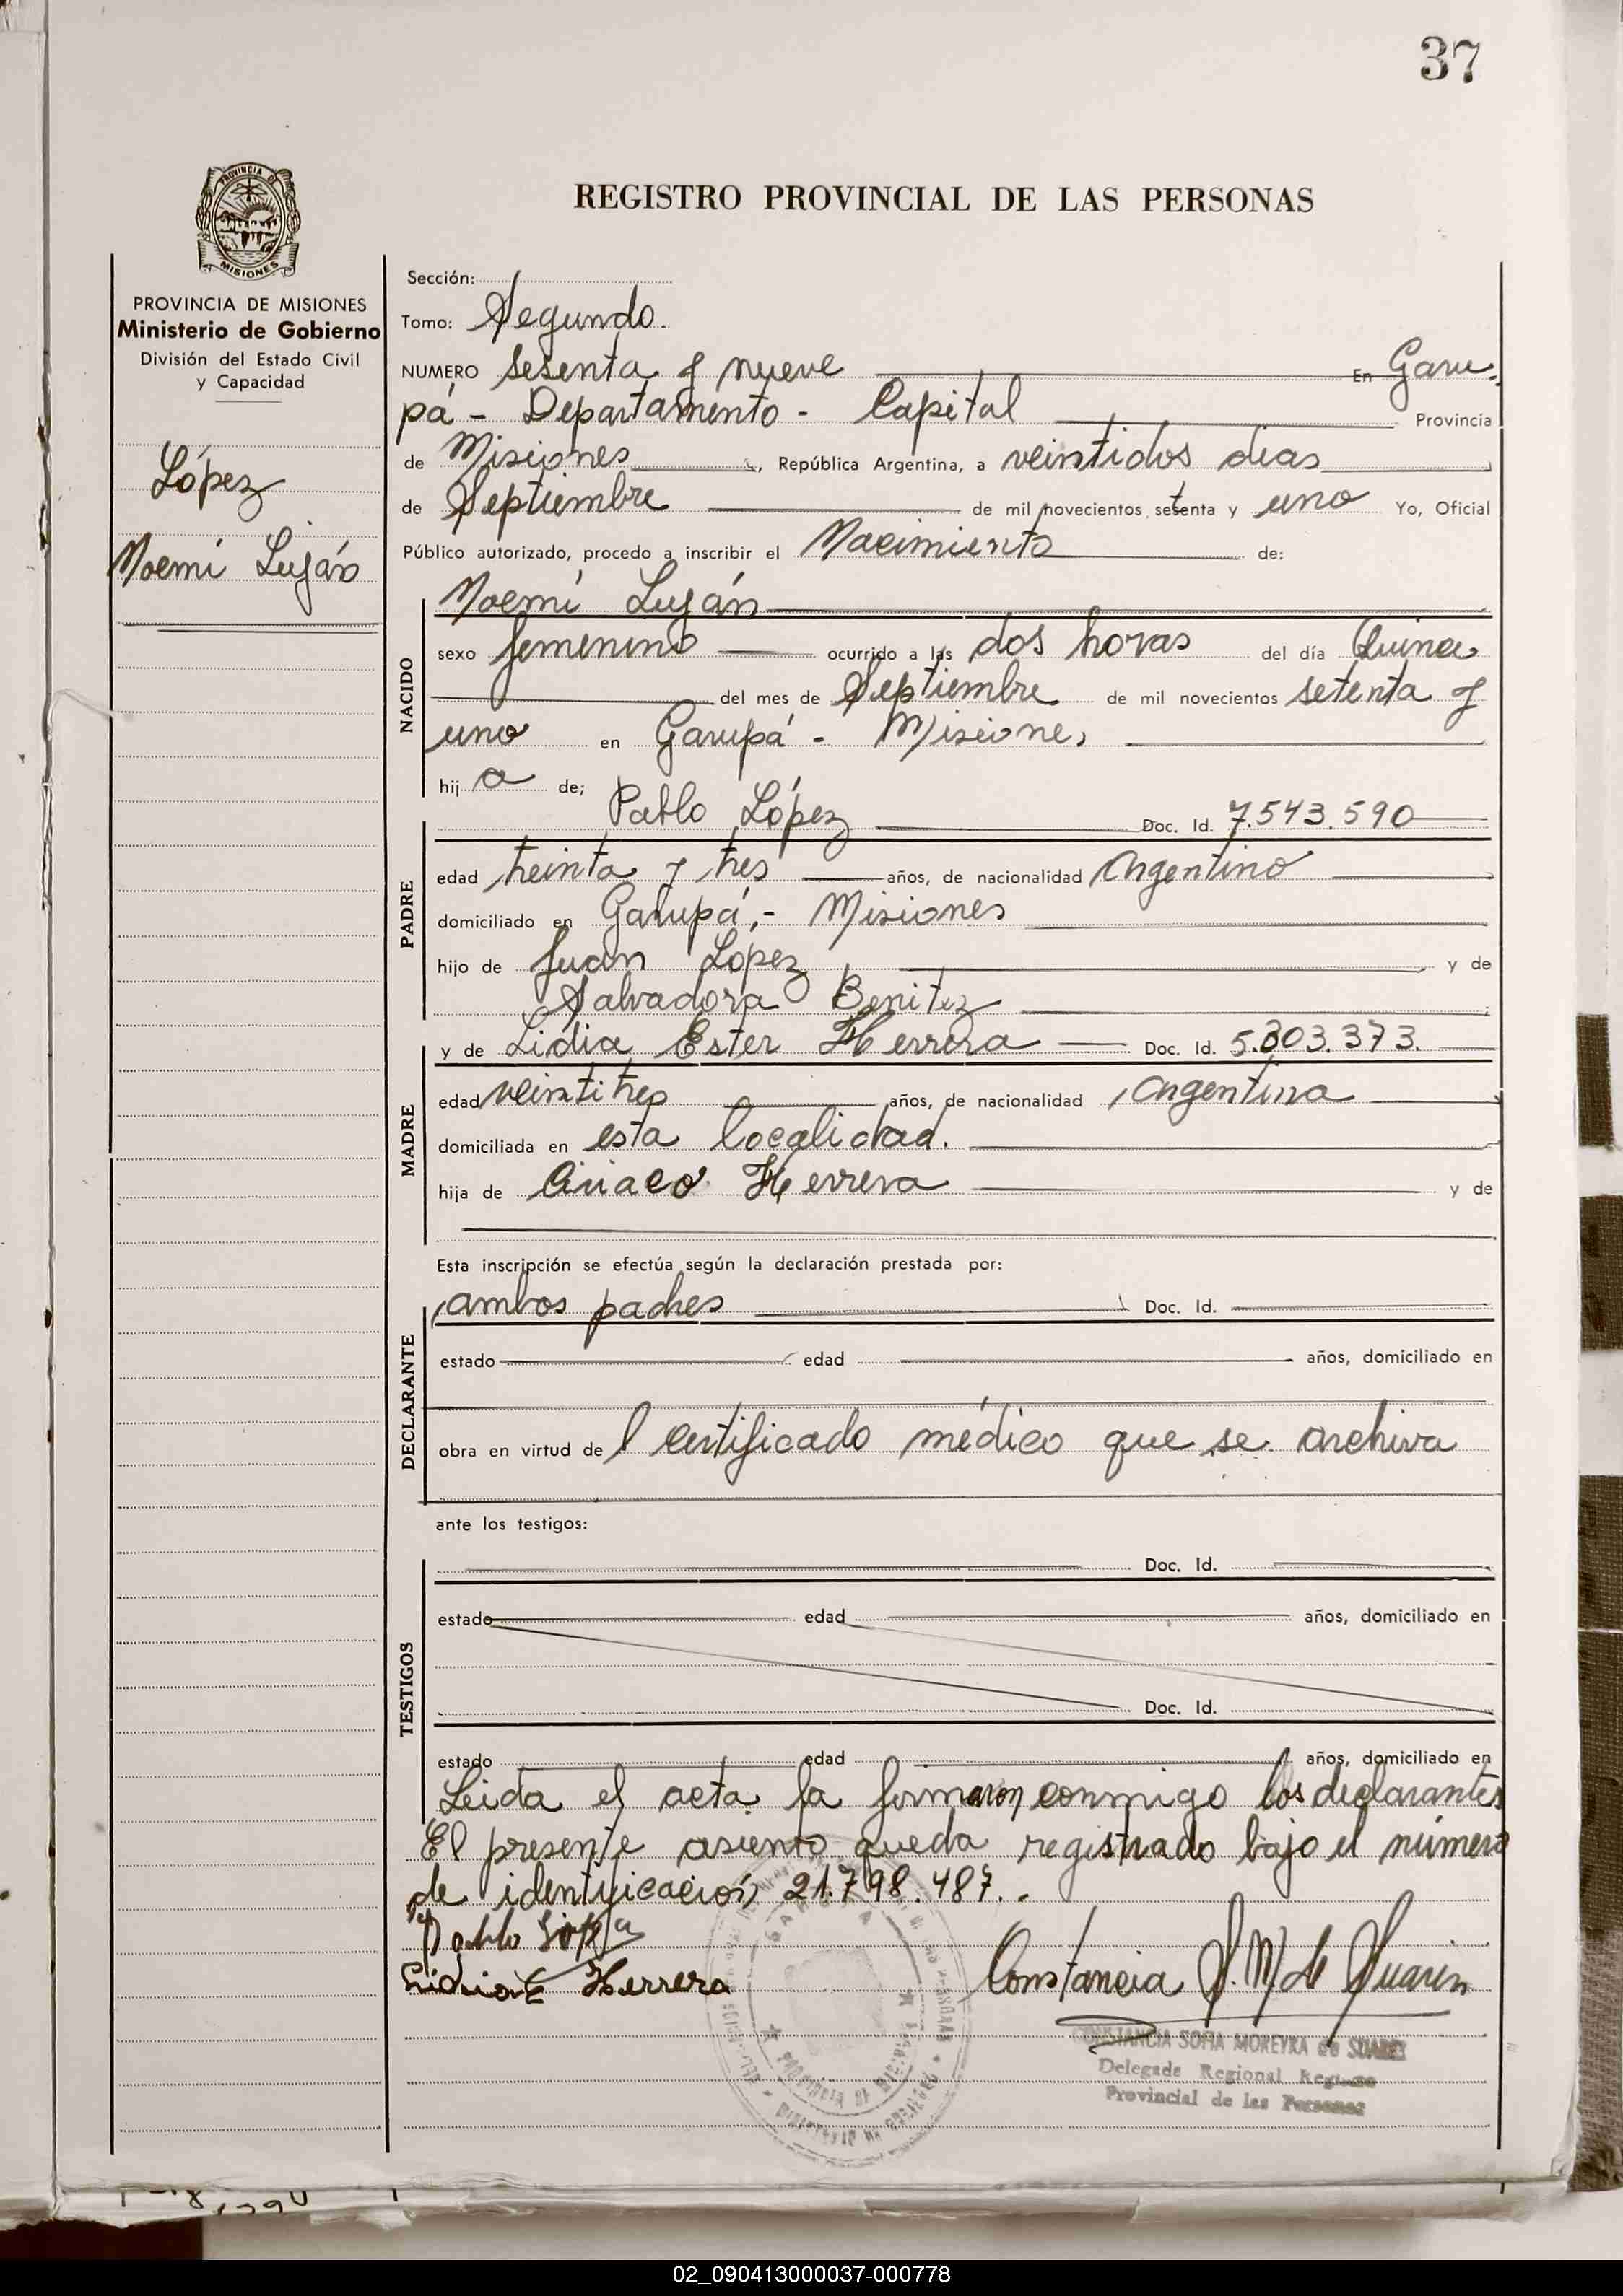 37
PROVINCIA DE
MISIONES
REGISTRO PROVINCIAL DE LAS PERSONAS
PROVINCIA DE MISIONES
Ministerio de Gobierno
División del Estado Civil
y Capacidad
López
Noemí Luján
Sección:
Tomo: Segundo.
NUMERO sesenta y nueve En Garu-
pá - Departamento - Capital Provincia
de Misiones, República Argentina, a veintidos dias
de Septiembre de mil novecientos setenta y uno Yo, Oficial
Público autorizado, procedo a inscribir el Nacimiento de:
NACIDO
Noemí Luján
sexo femenino ocurrido a las dos horas del día Quince
del mes de Septiembre de mil novecientos setenta y
uno en Garupá - Misiones
hij a de;
PADRE
Pablo López Doc. Id. 7.543.590
edad treinta y tres años, de nacionalidad Argentino
domiciliado en Garupá,- Misiones
hijo de Juan López y de
Salvadora Benitez
MADRE
y de Lidia Ester Herrera Doc. Id. 5.303.373.
edad veintitres años, de nacionalidad Argentina
domiciliada en esta localidad.
hija de Ciriaco Herrera y de
Esta inscripción se efectúa según la declaración prestada por:
DECLARANTE
ambos padres Doc. Id.
estado edad años, domiciliado en
obra en virtud de l certificado médico que se archiva
ante los testigos:
TESTIGOS
Doc. Id.
estado edad años, domiciliado en
Doc. Id.
estado edad años, domiciliado en
Leida el acta la firmaron conmigo los declarantes
El presente asiento queda registrado bajo el número
de identificación 21.798.487..
Pablo López
Lidia E Herrera
Constancia S. M. de Suarez
CONSTANCIA SOFIA MOREYRA de SUAREZ
Delegada Regional Registro
Provincial de las Personas
GARUPA
PROVINCIA DE MISIONES
02_090413000037-000778